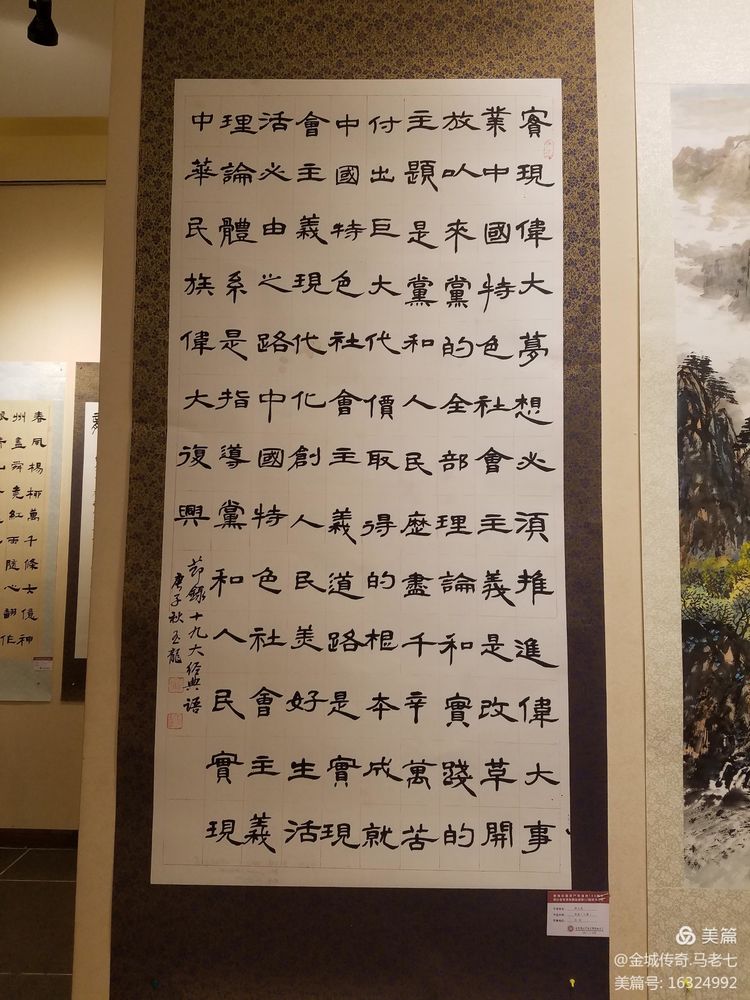 實現偉大夢想必須推進偉大事
業中國特色社會主義是改革開
放以來黨的全部理論和實踐的
主題是黨和人民歷盡千辛萬苦
付出巨大代價取得的根本成就
中國特色社會主義道路是實現
會主義現代化創人民美好生活
活必由之路中國特色社會主義
理論體系是指導黨和人民實現
中華民族偉大復興
節錄十九大經典語
庚子秋玉龍
春風楊柳萬千條六億神
州盡舜堯紅雨隨心翻作
美篇
@金城传奇.马老七
美篇号: 16324992